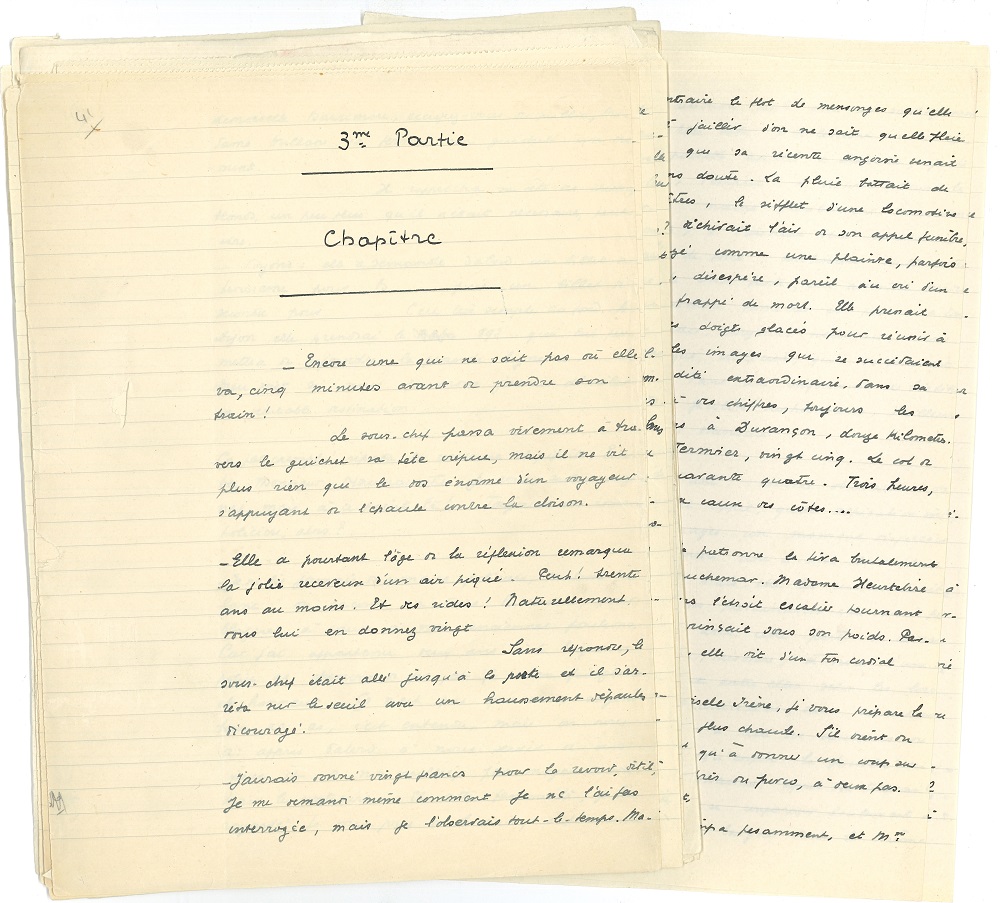 41
3me Partie
Chapître
— Encore une qui ne sait pas où elle
va, cinq minutes avant de prendre son
train !
Le sous-chef passa vivement à tra-
vers le guichet sa tête crépue, mais il ne vit
plus rien que le dos énorme d'un voyageur
s'appuyant de l'épaule contre la cloison.
— Elle a pourtant l'âge de la réflexion remarqua
la jolie receveuse d'un air piqué. Peuh ! trente
ans au moins. Et des rides ! Naturellement
vous lui en donnez vingt
Sans répondre, le
sous-chef était allé jusqu'à la porte et il s'ar-
rêta sur le seuil avec un haussement d'épaules
découragé.
— J'aurais donné vingt francs pour la revoir, dit-il,
Je me demande même comment je ne l'ai pas
interrogée, mais je l'observais tout-le-temps. Ma-
ntraire le flot de mensonges qu'elle
jaillir d'on ne sait quelle plaie
que sa récente angoisse venait
doute. La pluie battait de
tres, le sifflet d'une locomotive
déchirait l'air de son appel funèbre,
gé comme une plainte, parfois
, désespéré, pareil au cri d'un
frappé de mort. Elle prenait
s doigts glacés pour réussir à
les images qui se succédaient
dité extraordinaire, dans sa
à des chiffres, toujours les
s à Durançon, douze kilomètres.
Termier, vingt cinq. Le col de
uarante quatre. Trois heures,
à cause des côtes....
patronne la tira brutalement
uchemar. Madame Heurtebise à
l'étroit escalier tournant
rinçait sous son poids. Par-
, elle dit d'un ton cordial
iselle Irène, je vous prépare la
plus chaude. S'il vient du
qu'à donner un coup sur
près du perco, à deux pas.
ipa pesamment, et Mme